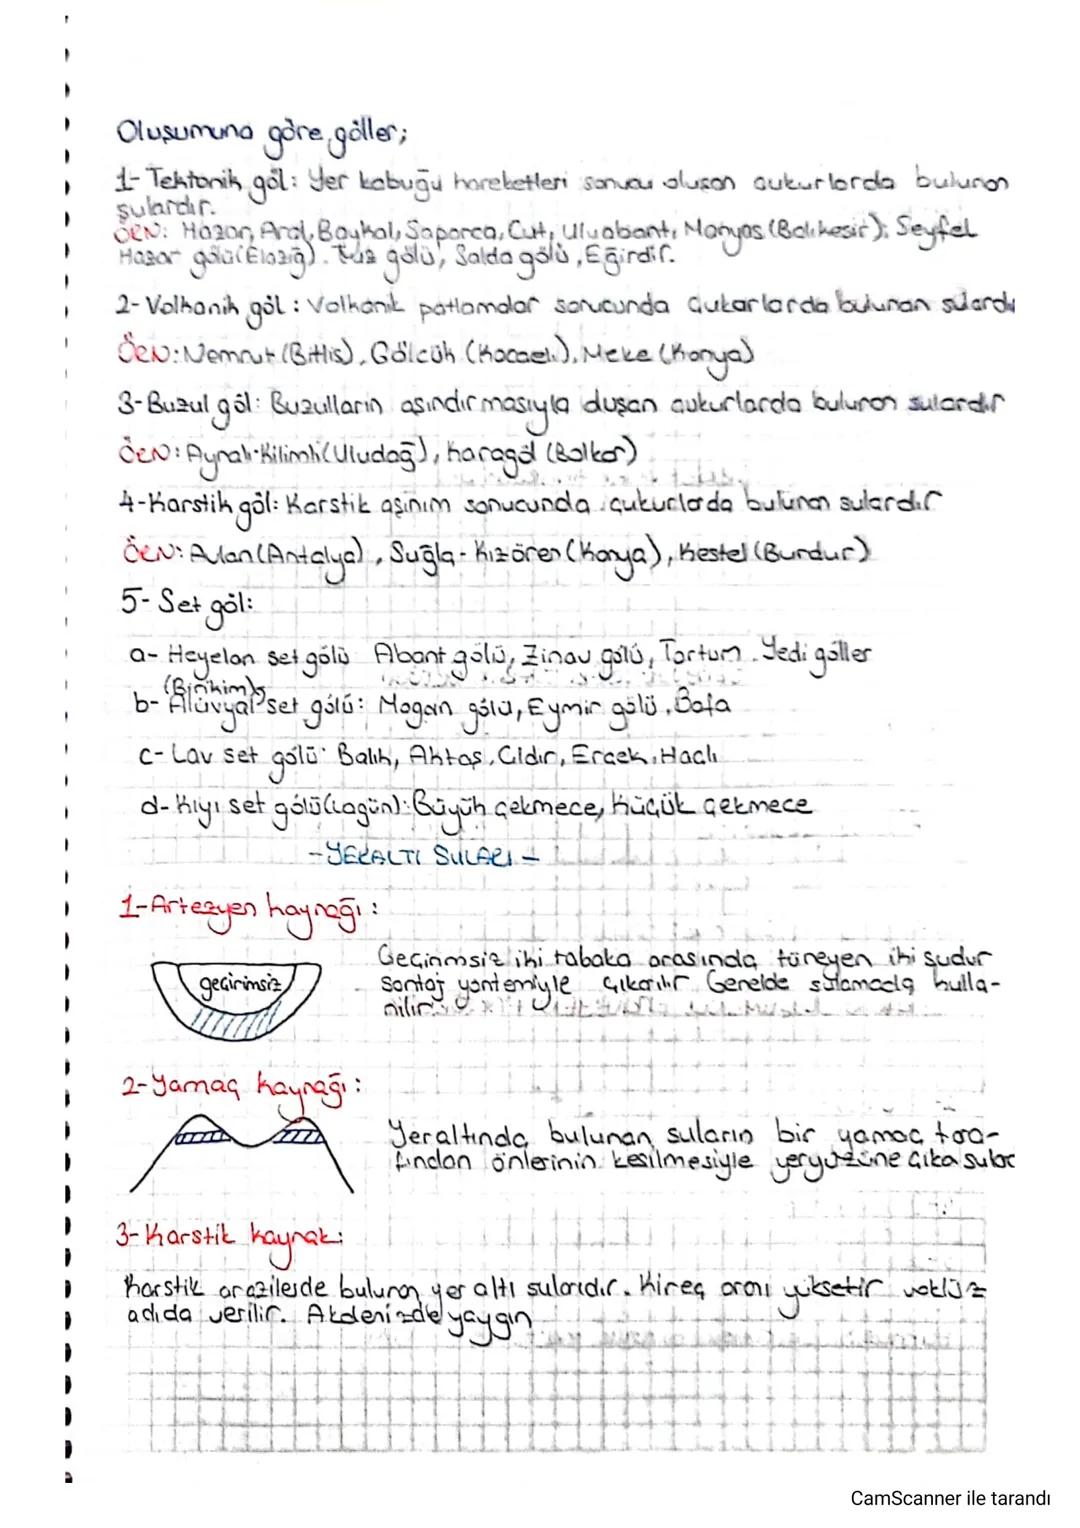 Oluşumuna göre göller;
1- Tektonik göl: Yer kabuğu hareketleri sonucu oluşan çukurlarda bulunan
sulardır.
ÖRN: Hazar, Aral, Baykal, Sapanca, Çut, Uluabant, Manyas (Balıkesir); Seyfel
Hazar gölü (Elazığ). Tuz gölü, Salda gölü, Eğirdir.
2- Volkanik göl: Volkanik patlamalar sonucunda çukurlarda bulunan sulardı
ÖRN: Nemrut (Bitlis), Gölcük (Kocaeli), Meke (Konya)
3- Buzul göl: Buzulların aşındırmasıyla oluşan çukurlarda bulunan sulardır
ÖRN: Aynalı-Kilimli (Uludağ), karagöl (Bolkar)
4- Karstik göl: Karstik aşınım sonucunda çukurlarda bulunan sulardır
ÖRN: Avlan (Antalya), Suğla - Kızören (Konya), Kestel (Burdur)
5- Set göl:
a- Heyelan set gölü Abant gölü, Zinav gölü, Tortum. Yedi göller
(Birikim)
b- Alüvyal set gölü: Mogan gölü, Eymir gölü, Bafa
c- Lav set gölü: Balık, Aktaş, Çıldır, Erçek, Haçlı
d- Kıyı set gölü (Lagün): Büyük çekmece, Küçük çekmece
- YERALTI SULARI -
1- Artezyen kaynağı:
Geçirimsiz iki tabaka arasında türeyen iki sudur
sontaj yöntemiyle çıkarılır. Genelde sulamada kulla-
nılır.
geçirimsiz
2- Yamaç kaynağı:
Yeraltında bulunan suların bir yamaç tara-
fından önlerinin kesilmesiyle yeryüzüne çıka sular
3- Karstik kaynak:
Karstik arazilerde bulunan yer altı sularıdır. Kireç oranı yüksetir voklüz
adıda verilir. Akdenizde yaygın
CamScanner ile tarandı